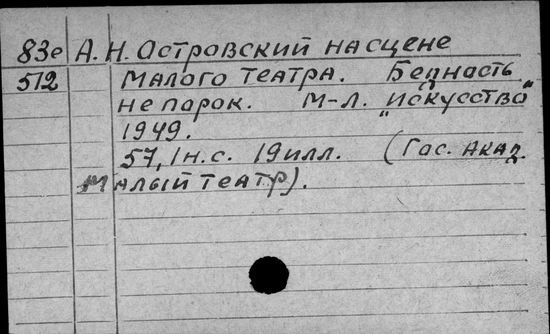 83е А. Н. Островский на сцене
512 Малого театра. Бедность
не парок. М-Л. "Искусство"
1949.
57, 1 н.с. 19 илл. (Гос. Акад.
Малый театр).